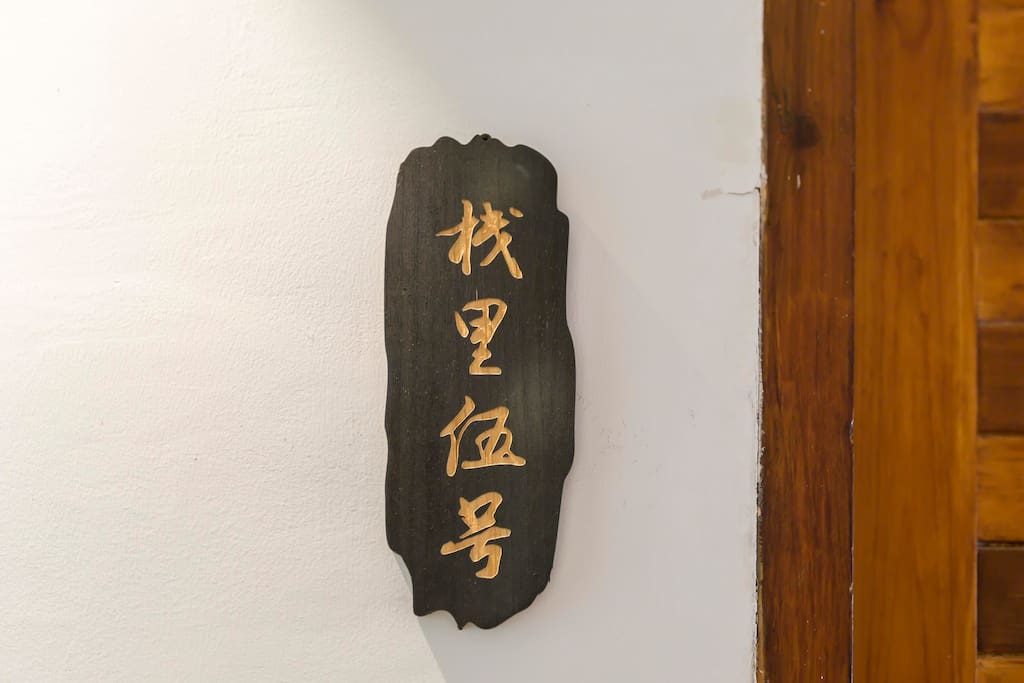 栈里伍号